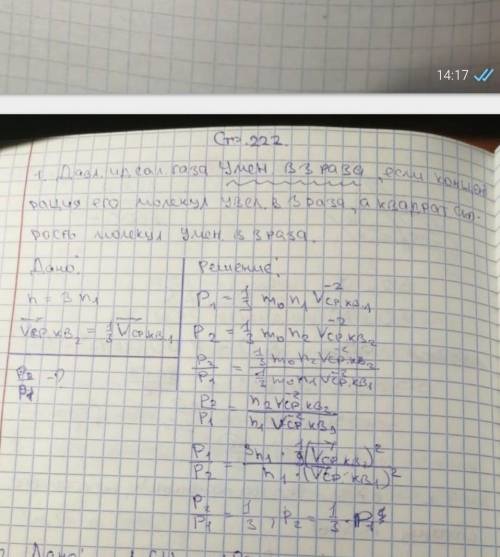 14:17
Стр. 222.
1. Давл. идеал. газа умен. в 3 раза, если концент
рация его молекул увел. в 3 раза, а квадрат ско-
рость молекул умен. в 3 раза.
Дано:
n = 3 n₁
V̅ср.кв₂ = 1/3 V̅ср.кв₁
P₂/P₁ - ?
Решение:
P₁ = 1/3 m₀ n₁ V̅²ср.кв₁
P₂ = 1/3 m₀ n₂ V̅²ср.кв₂
P₂/P₁ = (1/3 m₀ n₂ V̅²ср.кв₂)/(1/3 m₀ n₁ V̅²ср.кв₁)
P₂/P₁ = (n₂ V̅²ср.кв₂)/(n₁ V̅²ср.кв₁)
P₁/P₂ = (3n₁ · 1/9 (V̅ср.кв₁)²)/(n₁ · (V̅ср.кв₁)²)
P₂/P₁ = 1/3, P₂ = 1/3 · P₁